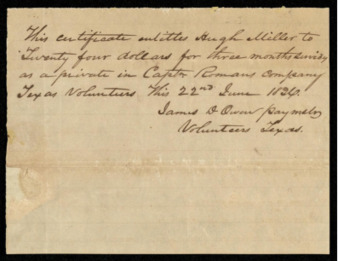 This certificate entitles Hugh Miller to
Twenty four dollars for three months
as a private in Captn Romans company
Texas Volunteers This 22nd June 1836
James D Owen paymstr
Volunteers Texas.